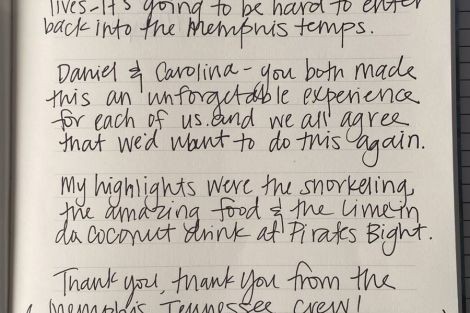 lives-It's going to be hard to enter
back into the Memphis temps.
Daniel & Carolina - you both made
this an unforgetable experience
for each of us. and we all agree
that we'd want to do this again.
My highlights were the snorkeling,
the amazing food & the lime in
da coconut drink at Pirates Bight.
Thank you, thank you from the
Memphis Tennessee crew!